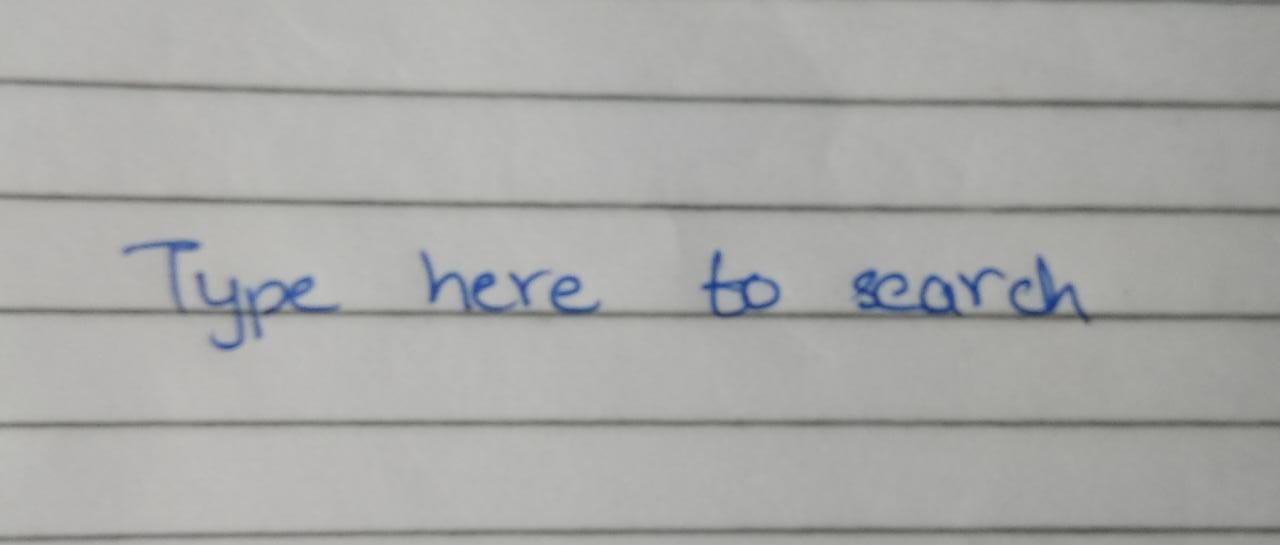 Type here to search